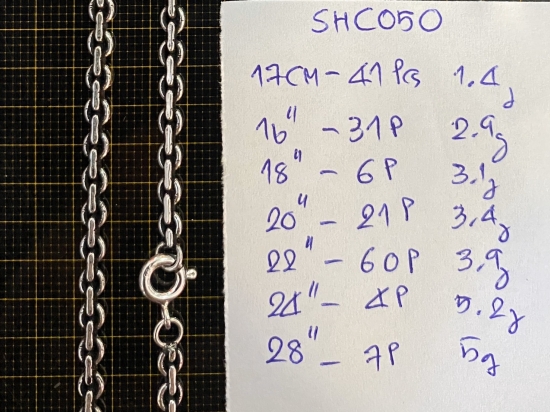 SHC050
17CM - 41 Pcs 1.4g
16" - 31P 2.9g
18" - 6P 3.1g
20" - 21P 3.4g
22" - 60P 3.9g
24" - 4P 5.2g
28" - 7P 5g